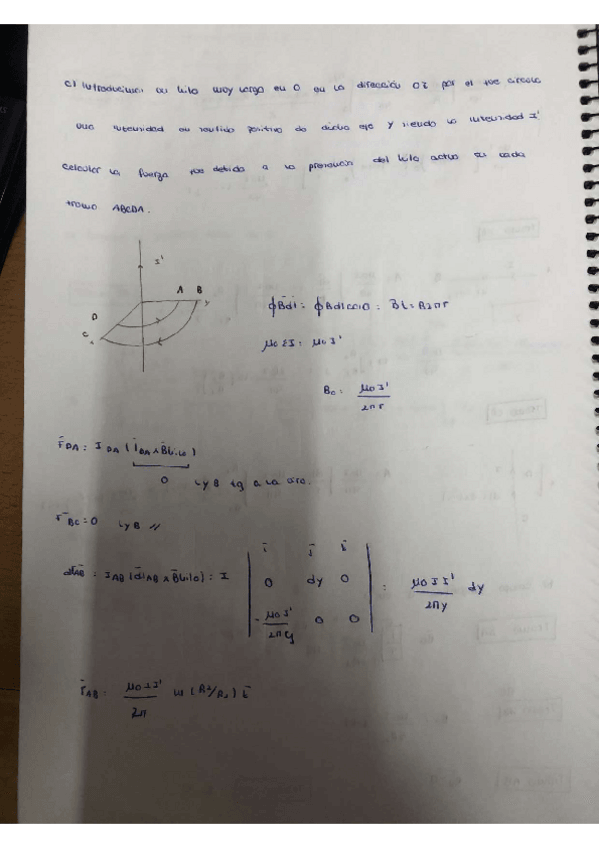 c) Introducimos un hilo muy largo en O en la dirección OZ por el que circula
una intensidad en sentido positivo de dicho eje y siendo la intensidad I'
calcular la fuerza que debido a la presencia del hilo actua en cada
tramo ABCDA.
I'
A B
y
D
C
∮B̄dl̄ = ∮Bdlcos0 = BL = B2πr
μ0 ΣI = μ0 I'
B = μ0 I' / 2πr
F̄DA = I DA (l̄DA ∧ B̄hilo)
0 L y B tg a la circ.
F̄BC = 0 L y B //
dF̄AB = IAB (dl̄AB ∧ B̄hilo) = I | ī j̄ k̄ |
| 0 dy 0 | = μ0 I I' / 2πy dy
| -μ0 I' / 2πy 0 0 |
F̄AB = μ0 I I' / 2π ln (R2/R1) k̄